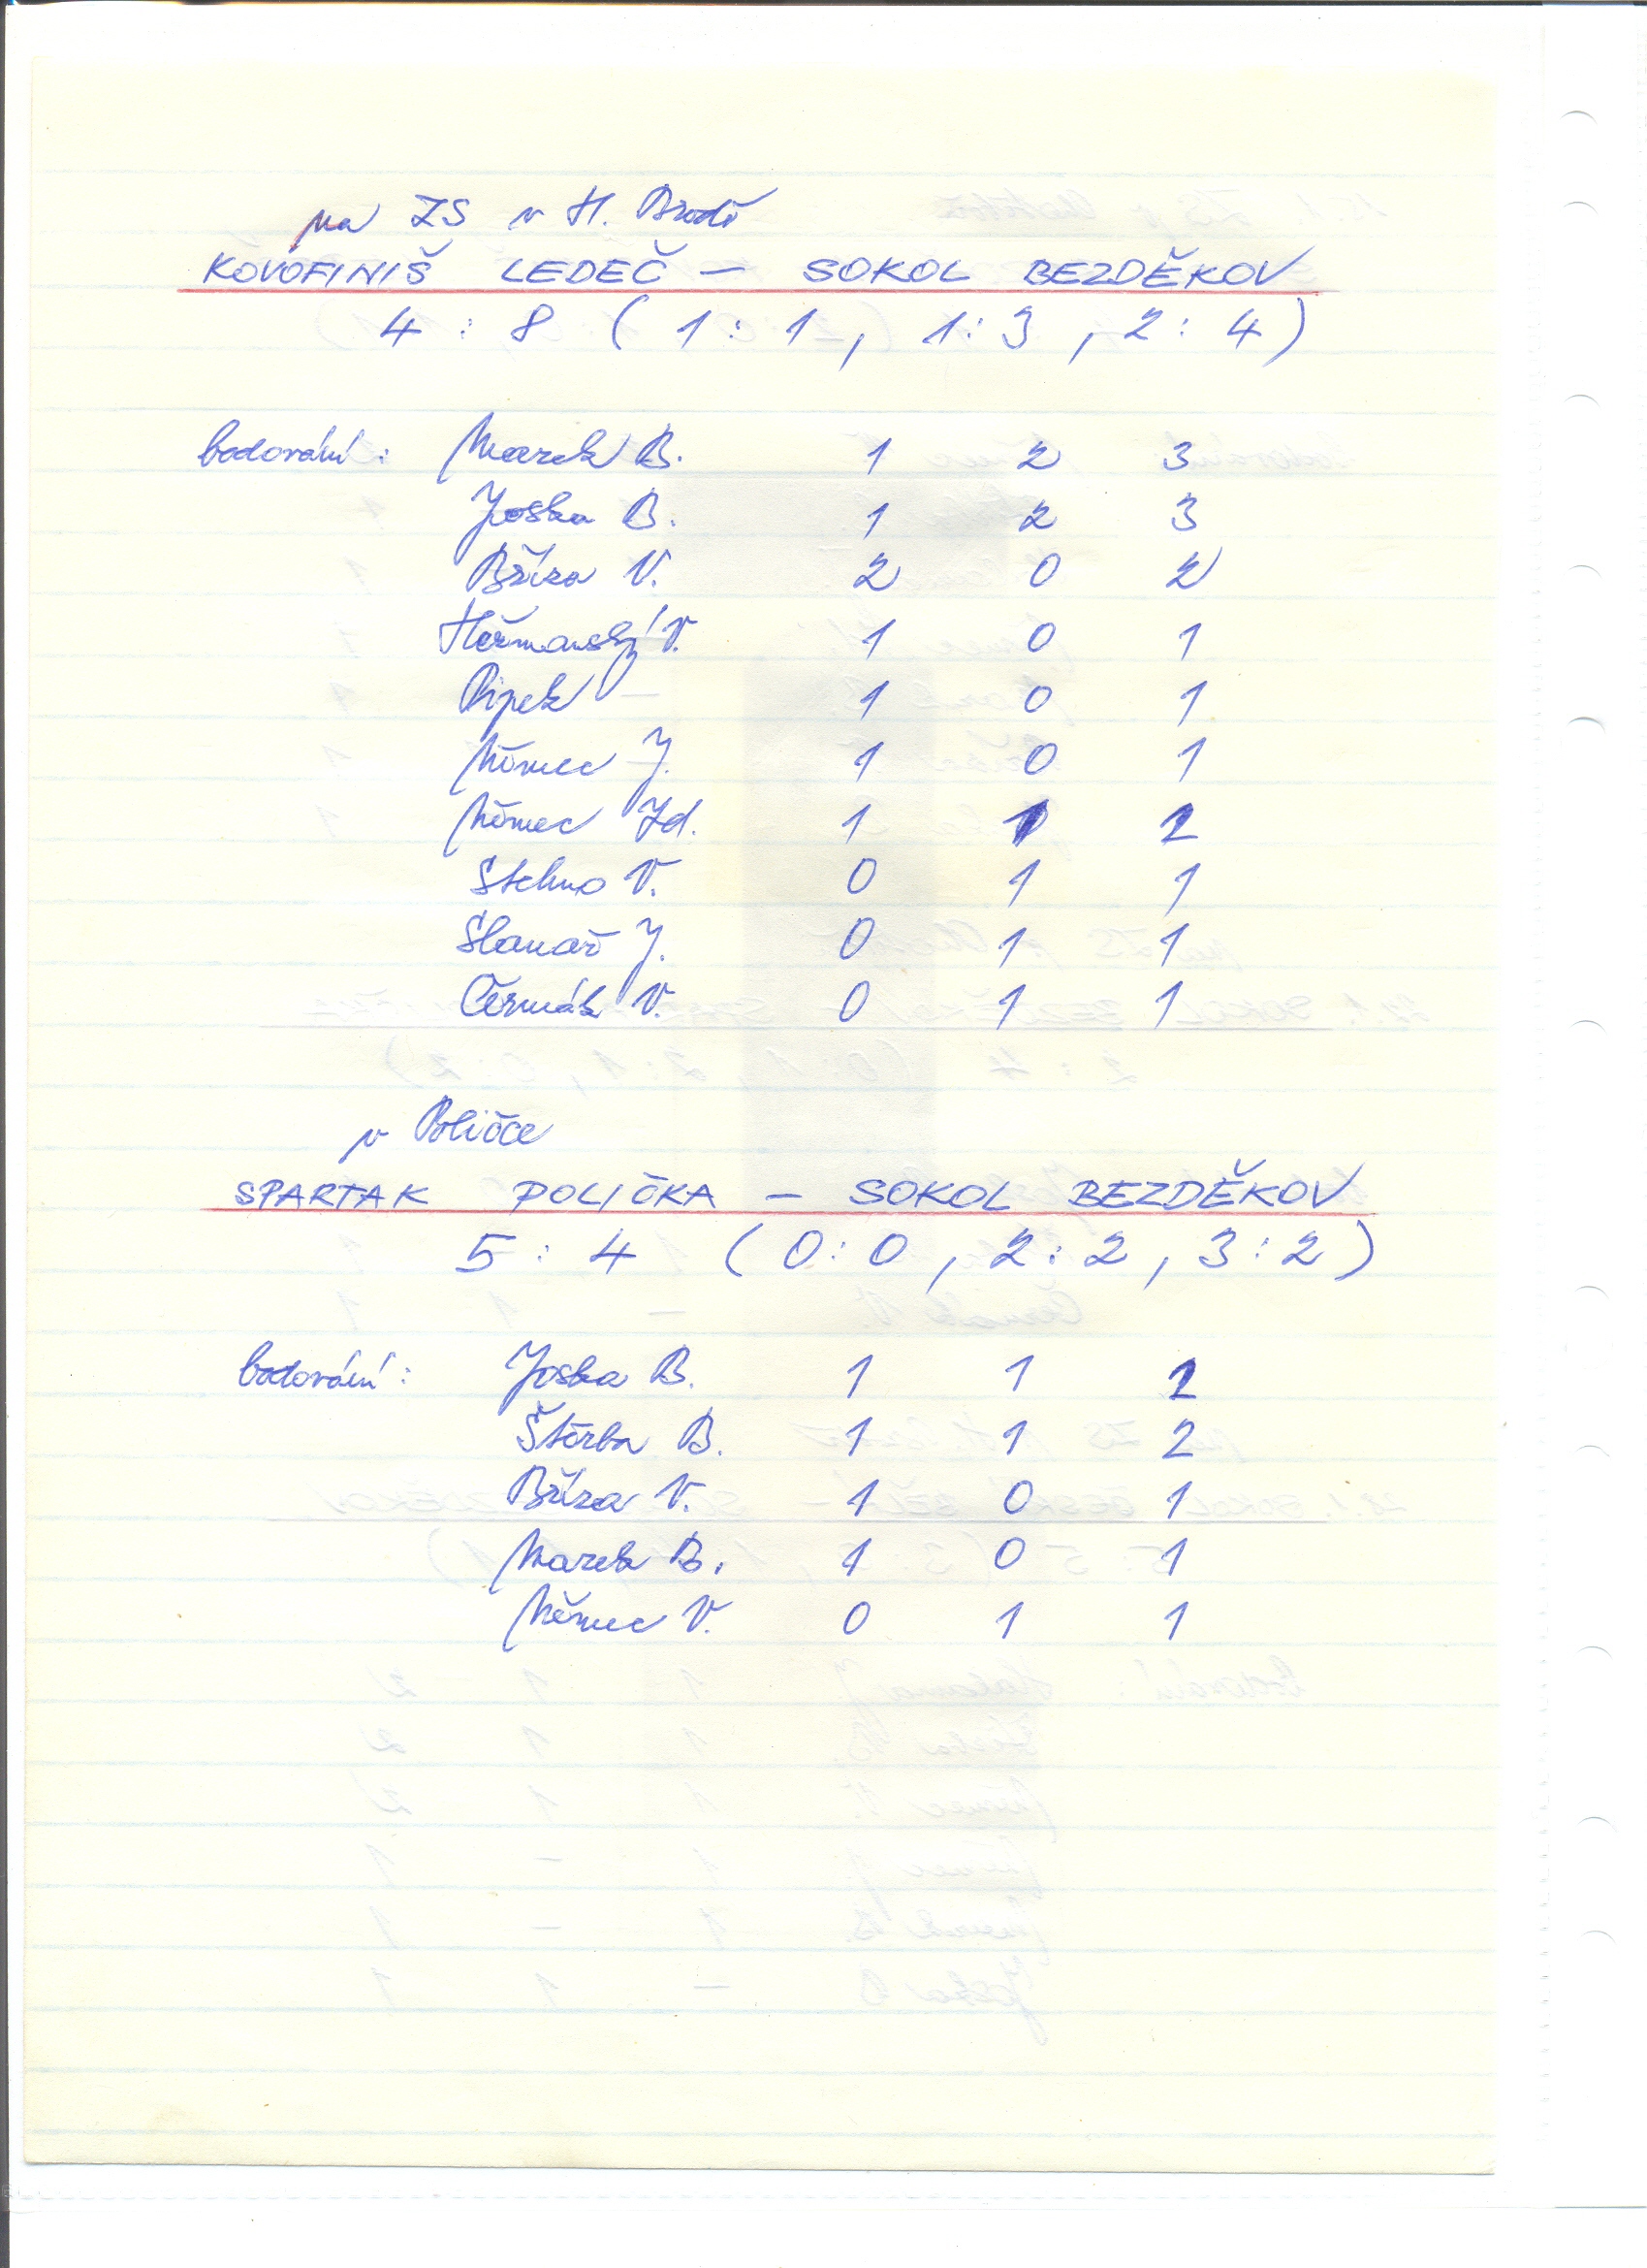 na ZS v H. Brodě
KOVOFINIŠ LEDEČ — SOKOL BEZDĚKOV
4 : 8 ( 1 : 1 , 1 : 3 , 2 : 4 )
bodování : Marek B. 1 2 3
Joska B. 1 2 3
Bříza V. 2 0 2
Heřmanský V. 1 0 1
Pipek — 1 0 1
Němec J. 1 0 1
Němec Zd. 1 1 2
Stehno V. 0 1 1
Slanař J. 0 1 1
Čermák V. 0 1 1
v Poličce
SPARTAK POLIČKA — SOKOL BEZDĚKOV
5 : 4 ( 0 : 0 , 2 : 2 , 3 : 2 )
bodování : Joska B. 1 1 2
Štěrba B. 1 1 2
Bříza V. 1 0 1
Marek B. 1 0 1
Němec V. 0 1 1